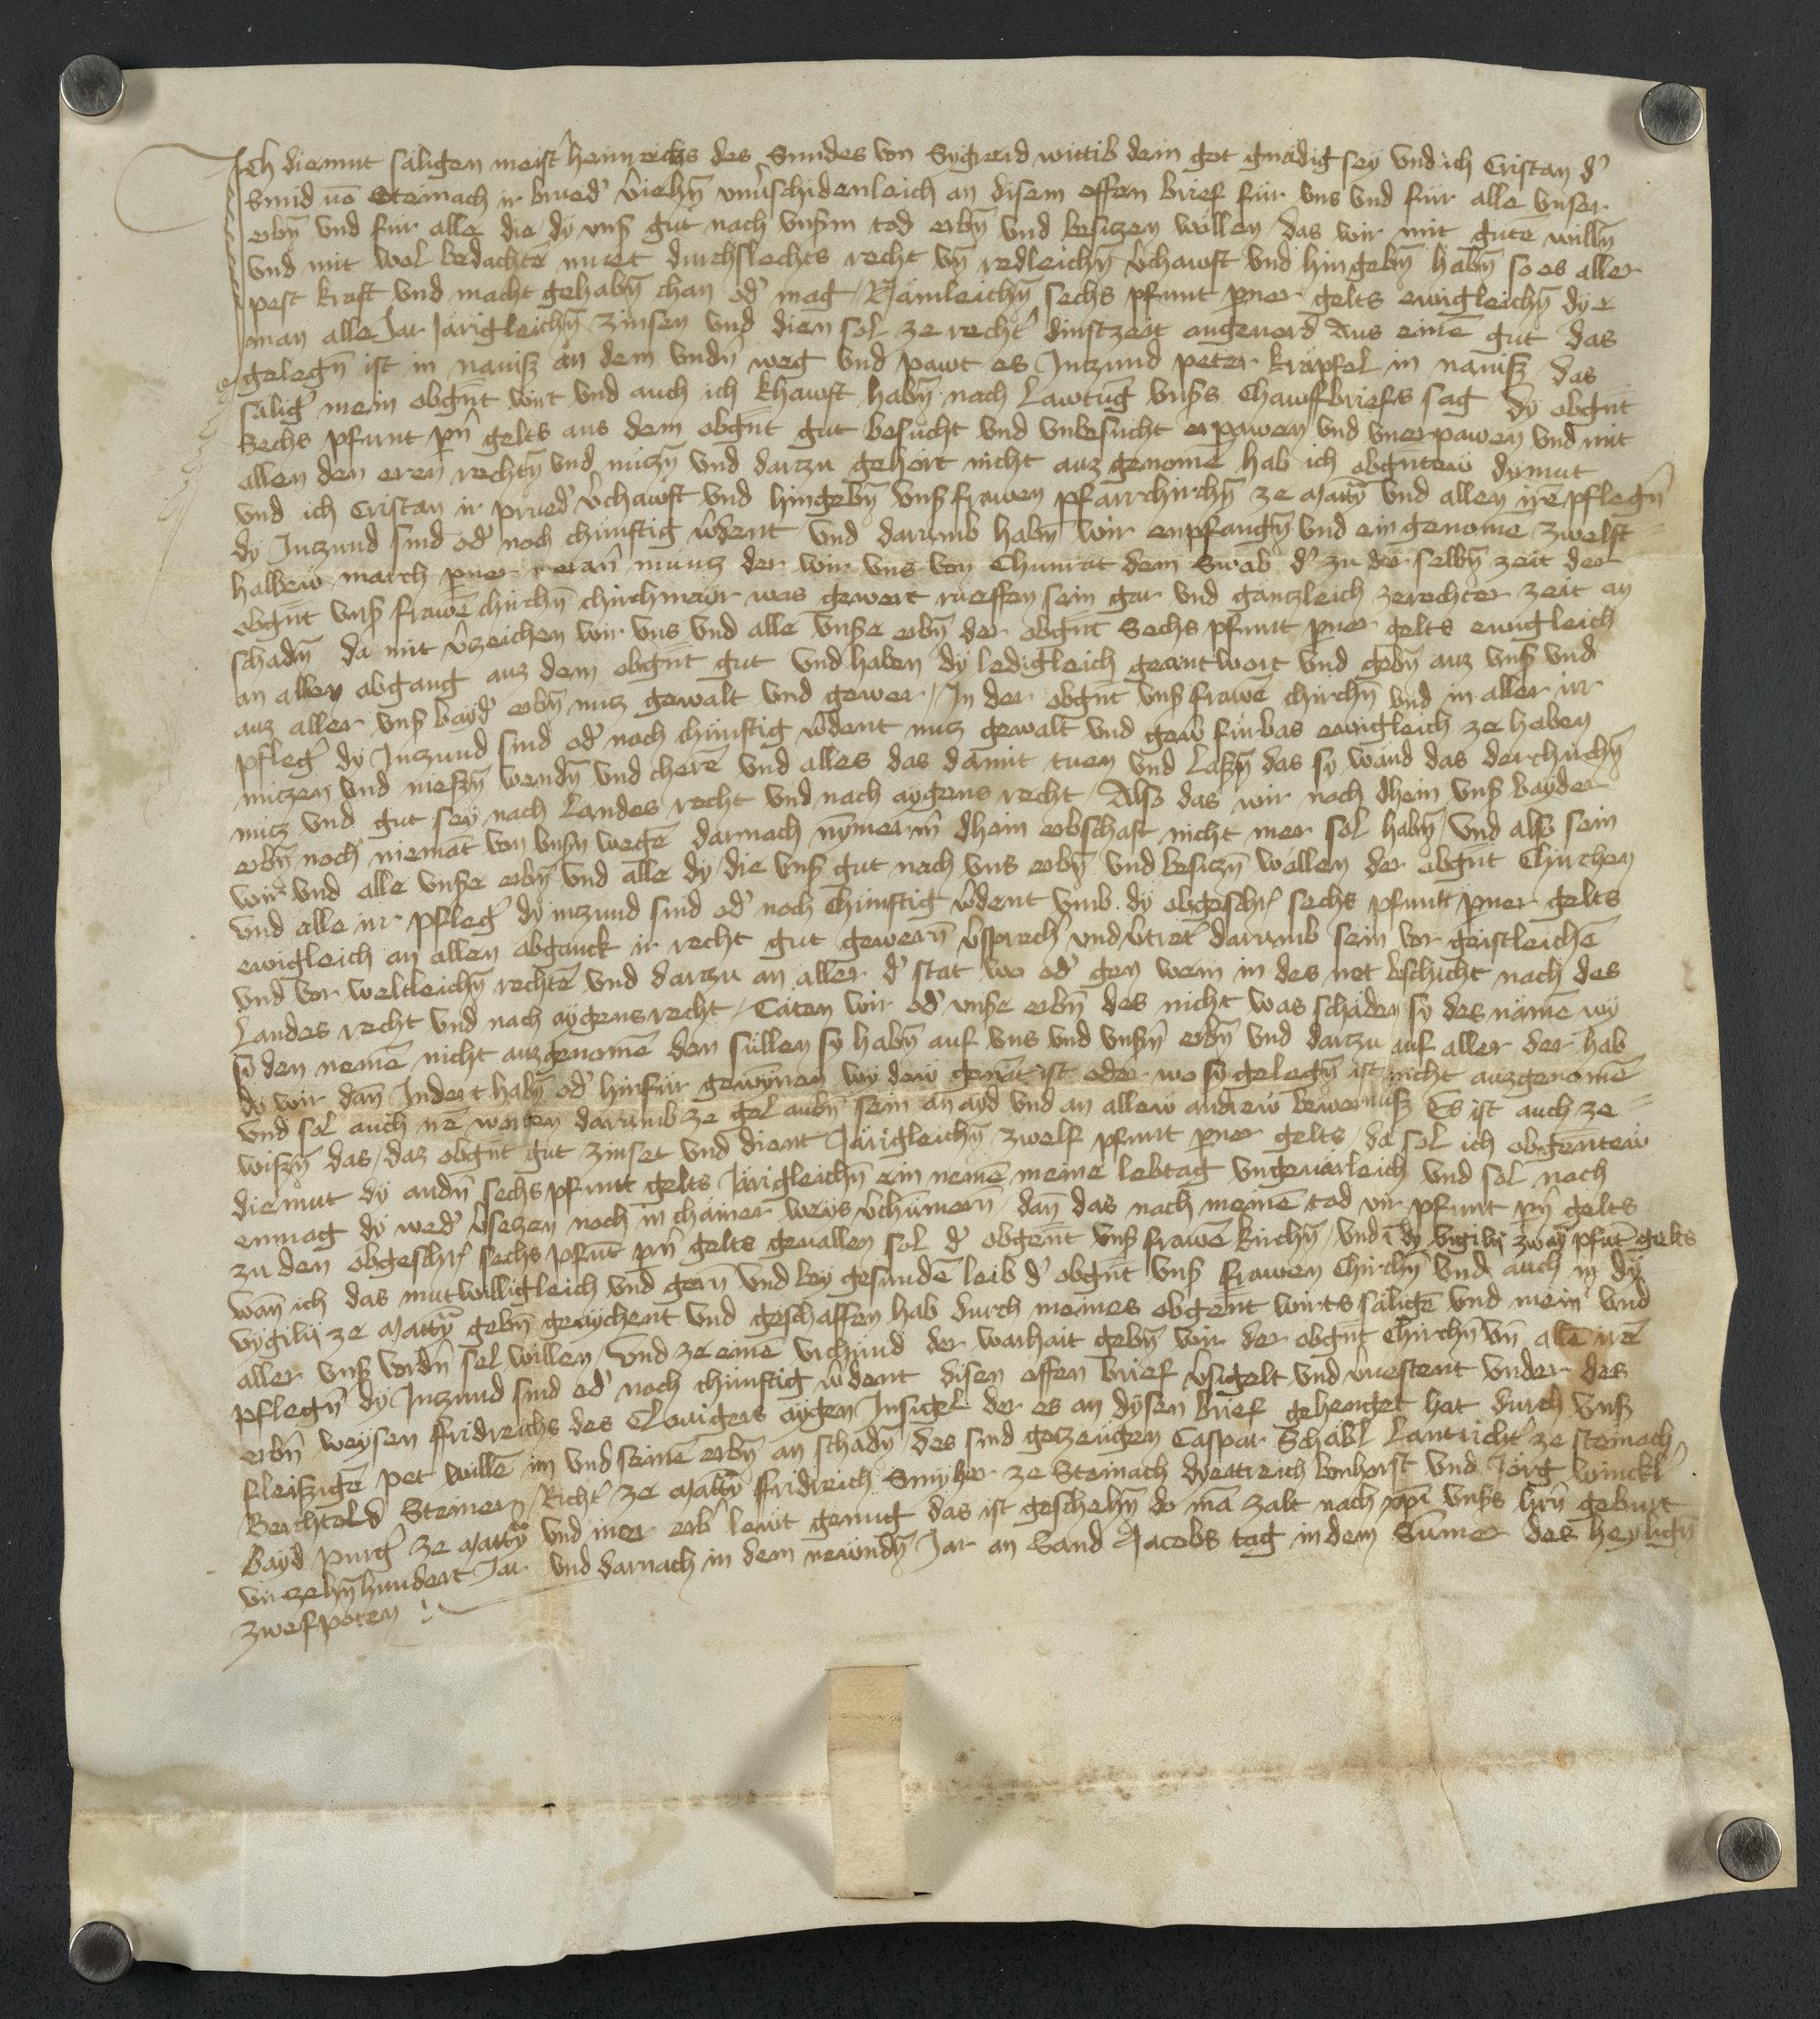 Ich diemut säligen maist̾ heinreichs des Smides von Sygreid wittib dem got gnädig sey vnd ich Cristan d̾
Smid vō Steinach ir brued̾ v̾iehn̄ vnu̾schidenleich an disem offen brief für vns vnd für alle vnser
erbn̄ vnd für alle die / dy vnß gut nach vnßm tod erbn̄ vnd besizen wellen / das wir mit gutē willn̄
vnd mit wol bedachtē muet durchslechts recht vn̄ redleichn̄ v̾chauft vnd hingebn̄ habn̄ so es aller
pest kraft vnd macht gehabn̄ chan od̾ mag / Nämleichn̄ sechs pfunt pner gelts ewigleichn̄ dye
man alle Jar Järigleichn̄ zinsen vnd dien sol ze recht̾ dinstzeit angeuerd Aus einē gut das
gelegn̄ ist in nauiß an dem vndn̄ weg vnd pawt es Inzund peter kräpfel in nauiß das
sälig̾ mein obgn̄t wirt vnd auch ich khauft habn̄ nach lawtūg vnßs Chauffbriefs sag / dy obgn̄t
Sechs pfunt pn̄ gelts aus dem obgn̄t gut besucht vnd vnbesucht erpawen vnd vnerpawen vnd mit
allen den eren rechtn̄ vnd nuzn̄ vnd darzu gehört nicht auz genomē hab ich obgn̄tew dymut
vnd ich Cristan ir prued̾ v̾chauft vnd hingebn̄ vnß frawen pfarrchirchn̄ ze Matrȳ vnd allen irē pflegn̄
dy Inzund sind od̾ noch chünftig w̾dent / vnd darumb habn̄ wir enpfangn̄ vnd ein genomē zwelft
halbew march pner meran̄ münz der wir vns von Chunrat dem Swab d̾ zu der selbn̄ zeit der
obgn̄t vnß frawē chirchn̄ chirchmair was gewert rueffen sein gar vnd gänzleich zerechter zeit an
schadn̄ da mit v̾zeichen wir vns vnd alle vnße erbn̄ der obgn̄t Sechs pfunt pner gelts ewigleich
an allen abgang auz dem obgn̄t gut vnd haben dy ledigleich geantwort vnd gebn̄ auz vnß vnd
auz aller vnß bayd̾ erbn̄ nuz gewalt vnd gewer / In der obgn̄t vnß frawē chirchn̄ vnd in aller irr
pfleg̾ dy Inzund sind od̾ noch chünftig w̾dent nuz gewalt vnd gew̾ fürbas ewigleich ze haben
nuzen vnd niessn̄ wendn̄ vnd cherē vnd alles das damit tuen vnd laßn̄ das sy wänd das der chirchn̄
nuz vnd gut sey nach landes recht vnd nach aygens recht / Also das wir noch dhein vnß bayder
erbn̄ noch niemāt von vnßn wegē darnach nymerm̄ dhein erbschaft nicht mer sol habn̄ / vnd also sein
wir vnd alle vnße erbn̄ vnd alle dy / die vnß gut nach vns erbn̄ vnd besizn̄ wellen der obgn̄t Chirchen
vnd alle irr pfleg̾ dy inzund sind od̾ noch chünftig w̾dent vmb dy obgeschr̄ sechs pfunt pner gelts
ewigleich an allen abganck ir recht gut gewern̄ v̾sprech̾ vnd v̾tret̾ darumb sein vor geistleichē
vnd vor weltleichn̄ rechtē vnd darzu an aller d̾ stat wo od̾ gen wem in des not beschicht nach des
Landes recht vnd nach aygens recht / Täten wir od̾ vnße erbn̄ des nicht was schäden sy des nämē wy
sy den nemē nicht auzgenomē den süllen sy habn̄ auf vns vnd vnßn̄ erbn̄ vnd darzu auf aller der hab
dy wir dan̄ Indert habn̄ od̾ hinfür gewȳnen wy dew genāt ist oder wo sy gelegn̄ ist nicht auzgenomē
vnd sol auch irē worten darumb ze gelaubn̄ sein an ayd vnd an allew andrew bewernuß Es ist auch ze
wissn̄ das / daz obgn̄t gut zinset vnd dient Järigleichn̄ zwelf pfunt pner gelts / da sol ich obgen̄tew
diemut dy andn̄ sechs pfunt gelts Järigleichn̄ ein nemē meine lebtag vngeuärleich vnd sol noch
enmag dy wed̾ v̾sezen noch in chainer weys v̾chümern̄ / dan̄ das nach meinē tod vir pfunt pn̄ gelts
zu den obgeschr̄ sechs pfūt pn̄ gelts geuallen sol d̾ obgen̄t vnß frawē kirchn̄ / vnd ī dy vigilij zway pfūt gelts
wan̄ ich das mutwilligleich vnd gern̄ vnd bey gesundē leib d̾ obgn̄t vnß frawen Chirchn̄ vnd auch in dy
vygilij ze Matrȳ gebn̄ gemychent vnd geschaffen hab durch meines obgen̄t wirts säligē vnd mein̾ vnd
aller vnß vordn̄ sel willen / Vnd ze einē vrchünd der warhait gebn̄ wir der obgn̄t chirchn̄ vn̄ allē irē
pflegn̄ dy Inzund sind od̾ noch chünftig w̾dent disen offen brief v̾sigelt vnd v̾uestent vnder des
erbn̄ weysen ffridreichs des Clauigers aygen Insigel der es an dysen brief gehenget hat durch vnß
fleissigē pet willē im vnd seinē erbn̄ an schadn̄ / des sind gezeugen Caspar Schäbl lantricht̾ ze Steinach
Berchtold Steiner / Richt̾ ze Matrȳ ffridreich Smyher ze Steinach dyettreich bonhorst vnd Jörg winckl̾
bayd purg̾ ze Matrȳ vnd mer erb̾ leut genug das ist geschehn̄ do mā zalt nach xp̄i vnßs hrn̄ geburt
virzehn̄hundert Jar vnd darnach in dem newndn̄ Jar an Sand Jacobs tag in dem Sumer des heylign̄
zwefpoten